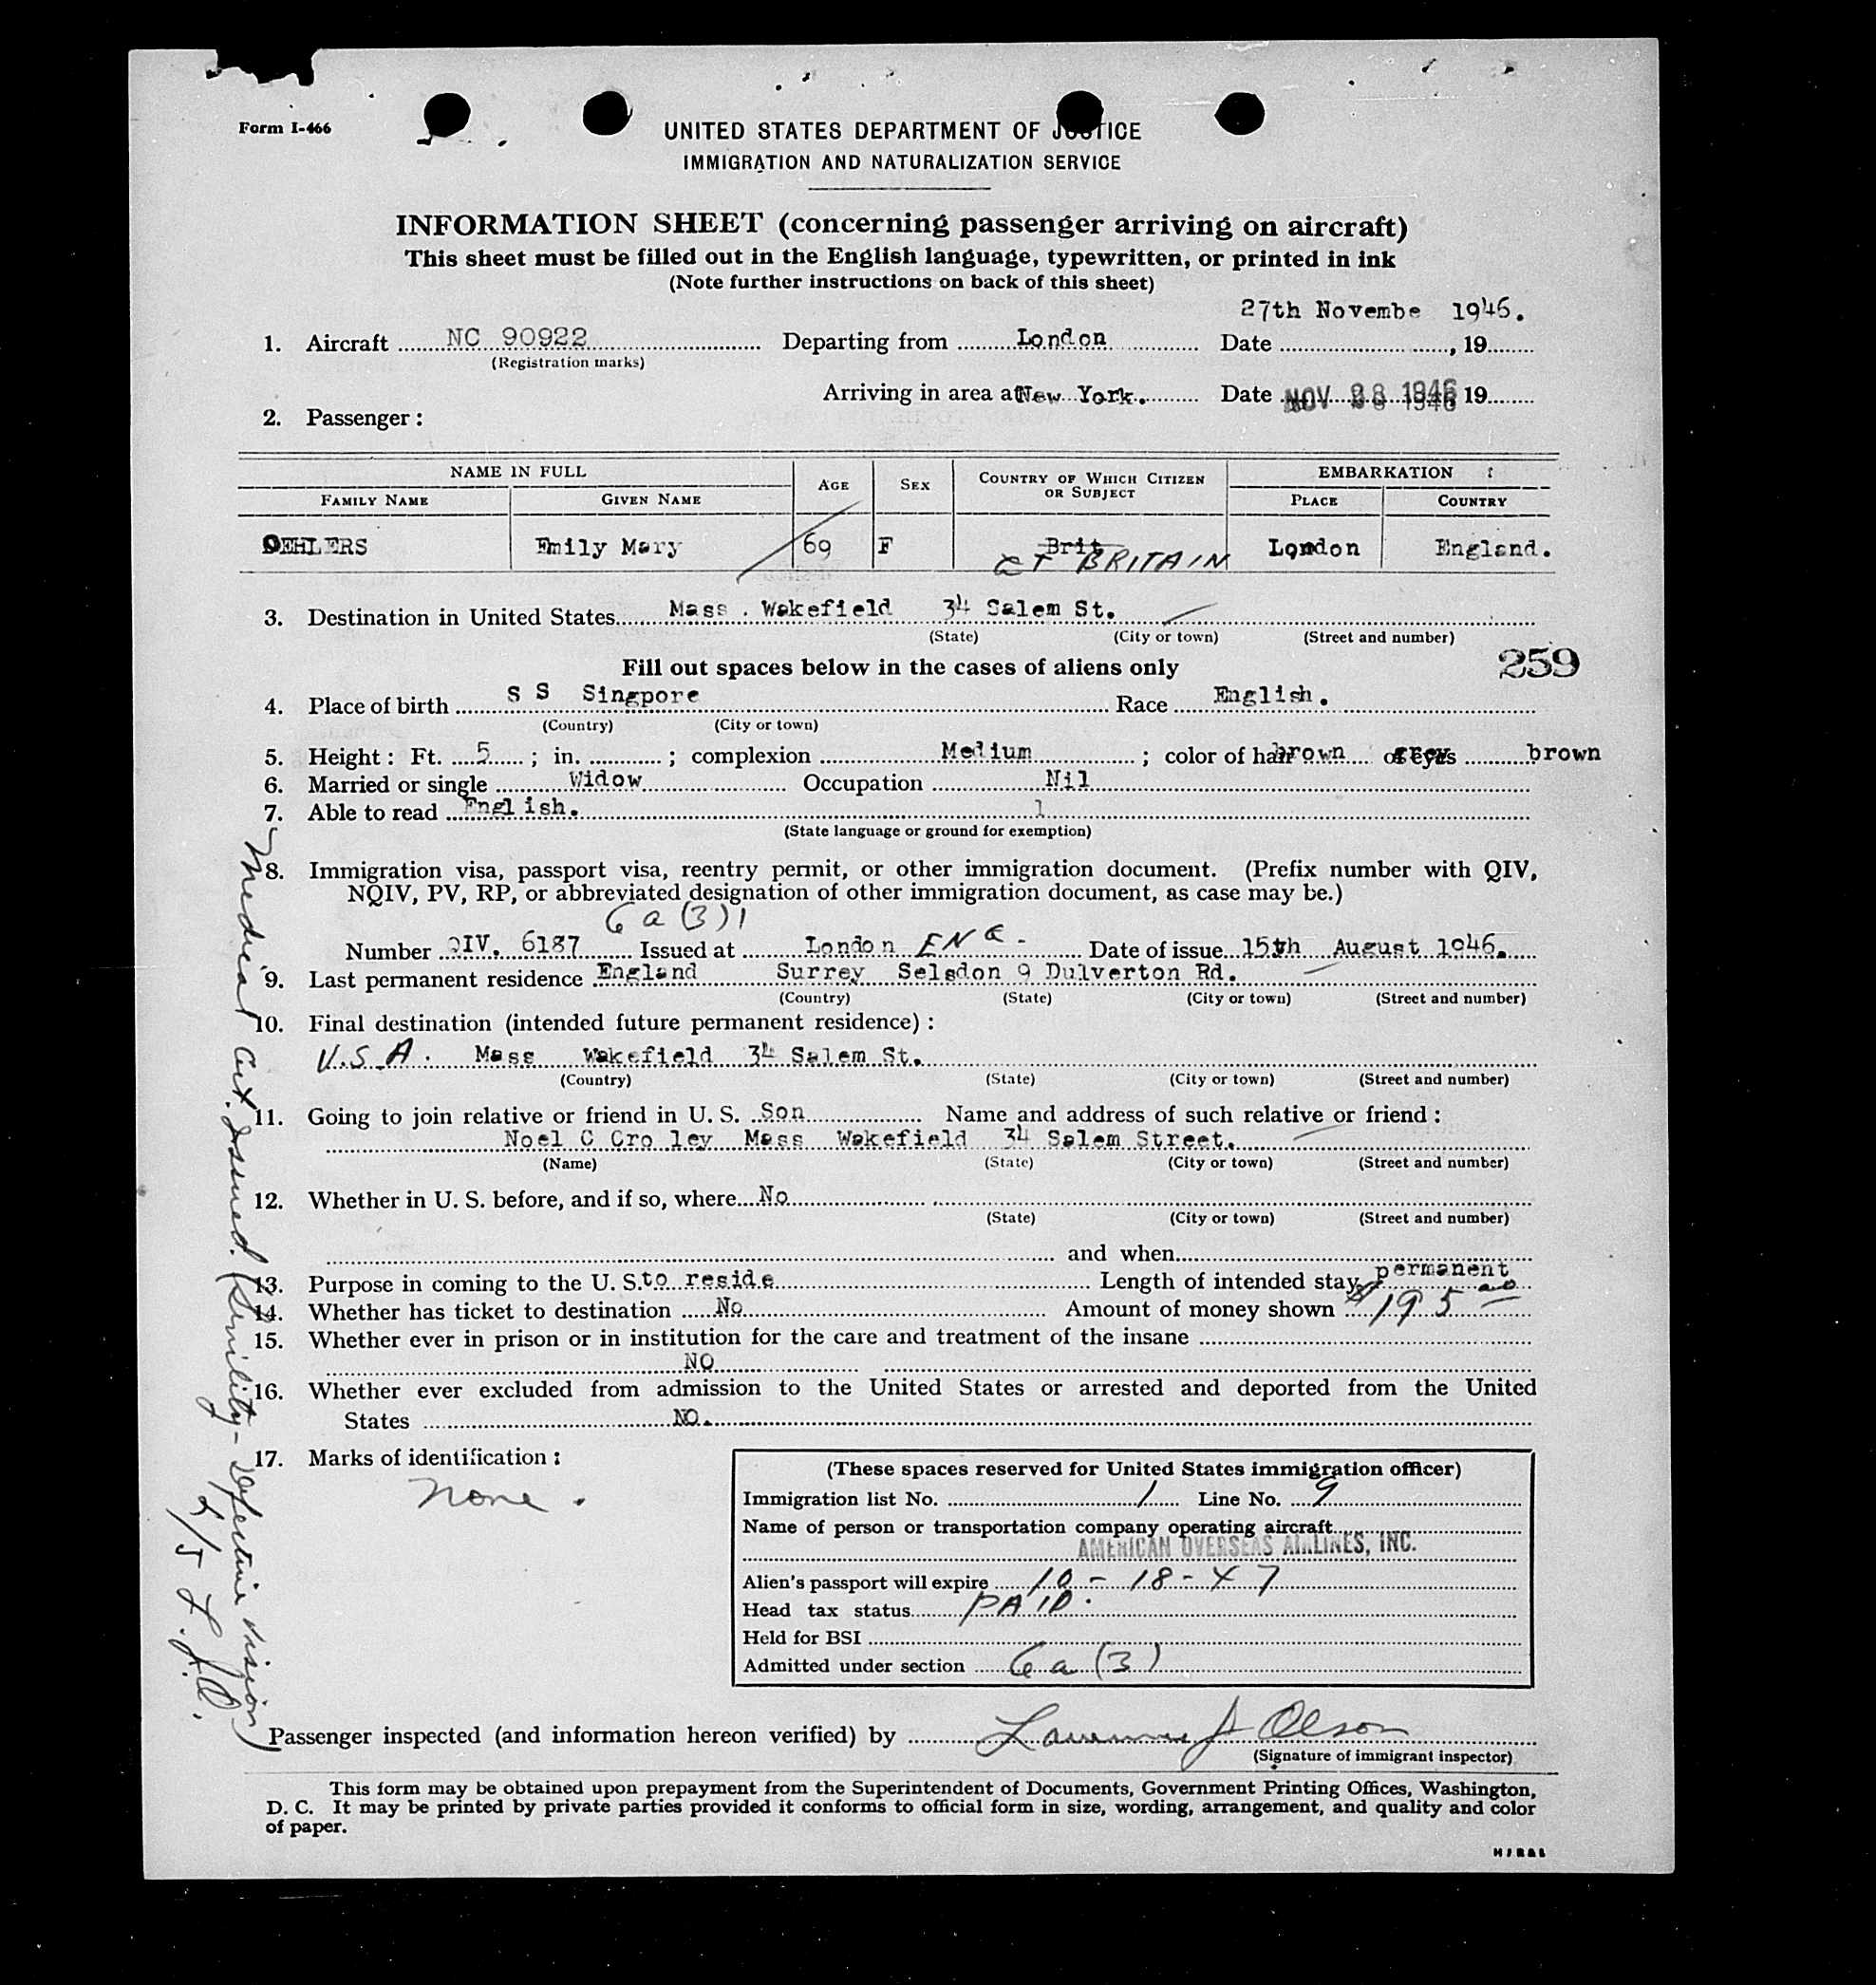 Form I-466
UNITED STATES DEPARTMENT OF JUSTICE
IMMIGRATION AND NATURALIZATION SERVICE
INFORMATION SHEET (concerning passenger arriving on aircraft)
This sheet must be filled out in the English language, typewritten, or printed in ink
(Note further instructions on back of this sheet)
27th Novembe 1946.
1. Aircraft NC 90922 Departing from London Date , 19
(Registration marks)
Arriving in area at New York. Date NOV 28 1946 19
2. Passenger:
NAME IN FULL AGE SEX COUNTRY OF WHICH CITIZEN OR SUBJECT EMBARKATION
FAMILY NAME GIVEN NAME PLACE COUNTRY
OEHLERS Emily Mary 69 F Brit London England.
GT BRITAIN
3. Destination in United States Mass. Wakefield 34 Salem St.
(State) (City or town) (Street and number)
Fill out spaces below in the cases of aliens only 259
4. Place of birth S S Singpore Race English.
(Country) (City or town)
5. Height: Ft. 5 ; in. ; complexion Medium ; color of hair brown grey of eyes brown
6. Married or single Widow Occupation Nil
7. Able to read English. 1
(State language or ground for exemption)
8. Immigration visa, passport visa, reentry permit, or other immigration document. (Prefix number with QIV,
NQIV, PV, RP, or abbreviated designation of other immigration document, as case may be.)
6 a (3) 1
Number QIV. 6187 Issued at London ENG. Date of issue 15th August 1946.
9. Last permanent residence England Surrey Selsdon 9 Dulverton Rd.
(Country) (State) (City or town) (Street and number)
10. Final destination (intended future permanent residence):
U.S.A. Mass Wakefield 34 Salem St.
(Country) (State) (City or town) (Street and number)
11. Going to join relative or friend in U. S. Son Name and address of such relative or friend:
Noel C Cro ley Mass Wakefield 34 Salem Street.
(Name) (State) (City or town) (Street and number)
12. Whether in U. S. before, and if so, where No
(State) (City or town) (Street and number)
and when
13. Purpose in coming to the U. S. to reside Length of intended stay permanent
14. Whether has ticket to destination No Amount of money shown $195 00
15. Whether ever in prison or in institution for the care and treatment of the insane
NO
16. Whether ever excluded from admission to the United States or arrested and deported from the United
States NO.
17. Marks of identification:
None.
(These spaces reserved for United States immigration officer)
Immigration list No. 1 Line No. 9
Name of person or transportation company operating aircraft
AMERICAN OVERSEAS AIRLINES, INC.
Alien's passport will expire 10-18-47
Head tax status PAID.
Held for BSI
Admitted under section 6 a (3)
Passenger inspected (and information hereon verified) by Lawrence J Olson
(Signature of immigrant inspector)
This form may be obtained upon prepayment from the Superintendent of Documents, Government Printing Offices, Washington,
D. C. It may be printed by private parties provided it conforms to official form in size, wording, arrangement, and quality and color
of paper.
Medical Cert. Issued. (Senility - Defective vision)
L.J.O.